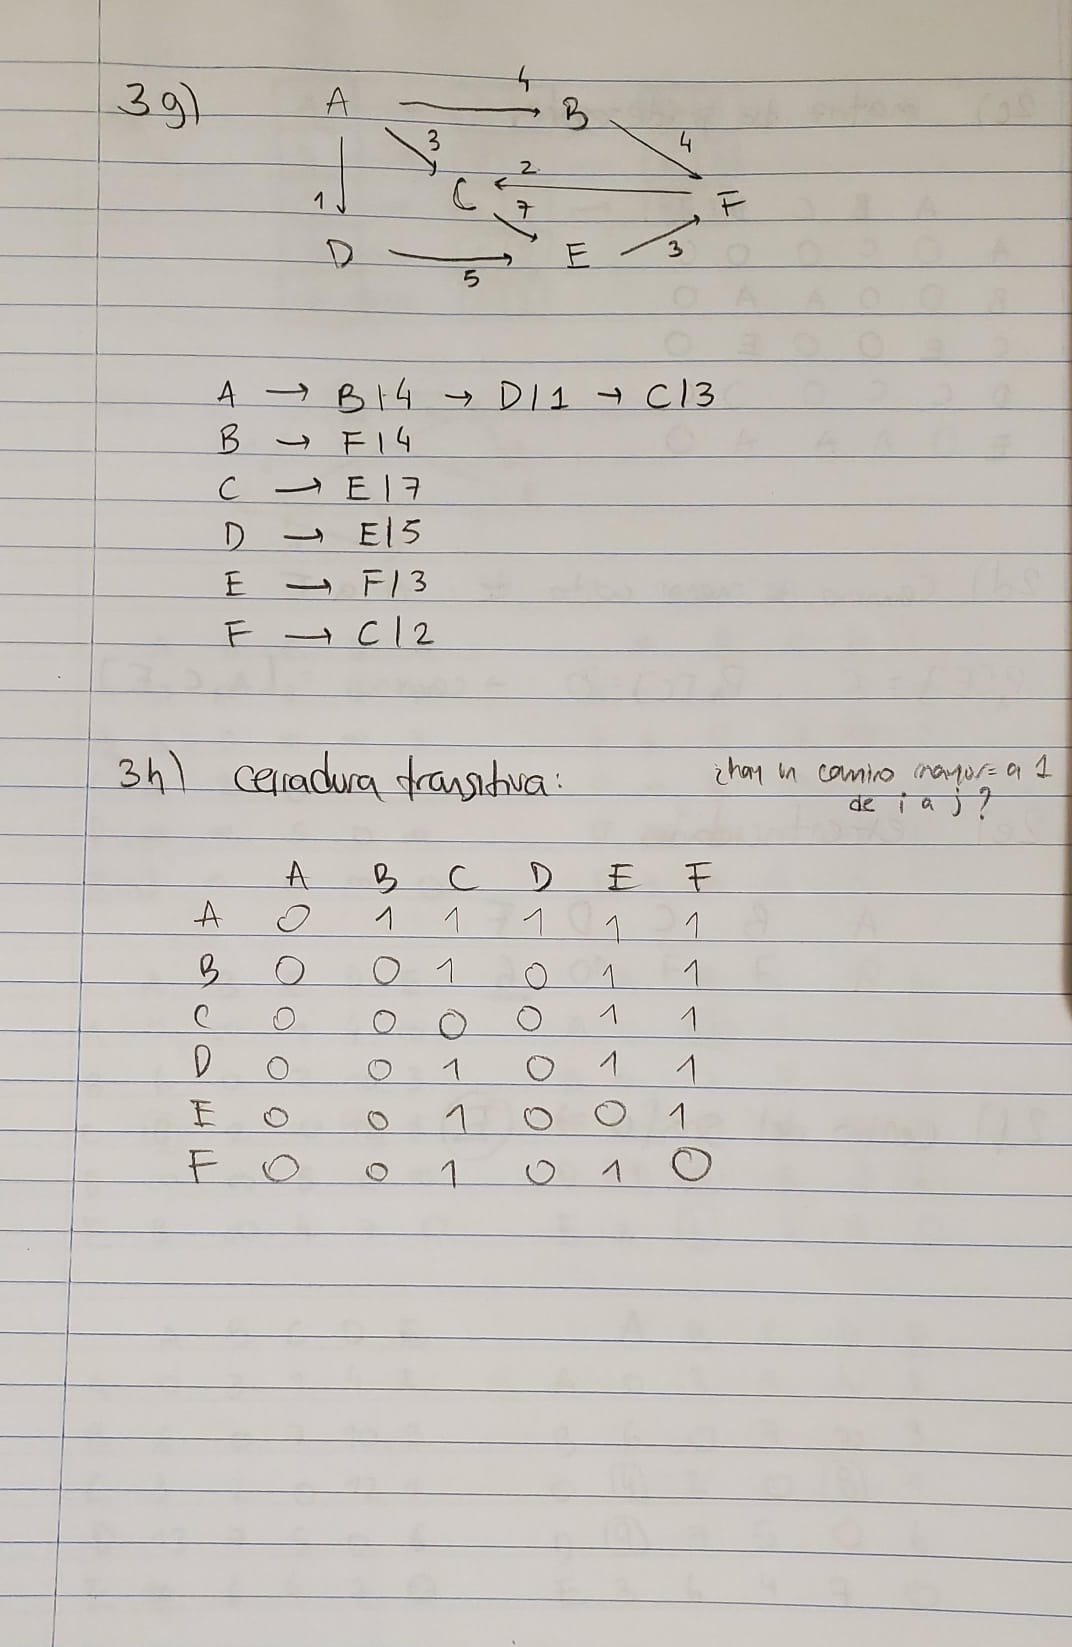 3g)
A 4 B
3 4
C 2 F
1 7
D 5 E 3
A → B|4 → D|1 → C|3
B → F|4
C → E|7
D → E|5
E → F|3
F → C|2
3h) cerradura transitiva: ¿hay un camino mayor= a 1
de i a j?
A B C D E F
A 0 1 1 1 1 1
B 0 0 1 0 1 1
C 0 0 0 0 1 1
D 0 0 1 0 1 1
E 0 0 1 0 0 1
F 0 0 1 0 1 0